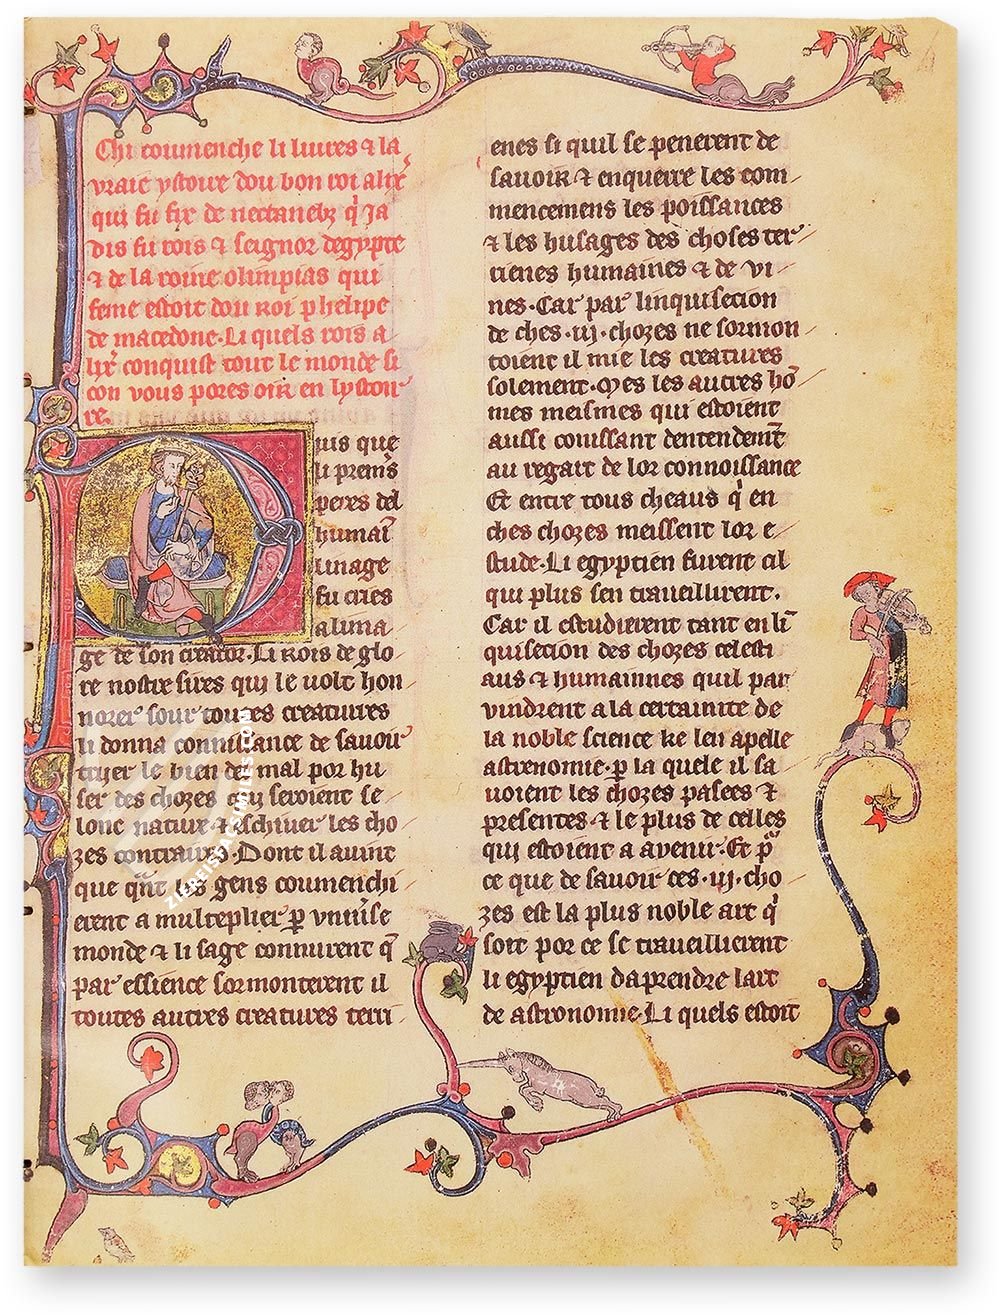 Chi coumenche li liures ⁊ la
vraie ystoire dou bon roi alix̄
qui fu fix de nectanebꝫ q̓ ja
dis fu rois ⁊ seignor degypte
⁊ de la roine olimpias qui
feme estoit dou roi phelipe
de macedone. Li quels rois a
lix̄ conquist tout le monde si
con vous pores oir en lystoi
re.
Puis que
li prem̄s
peres del
humaī
linage
fu cries
a lima
ge de son creator. Li rois de glo
re nostre sires qui le volt hon
norer sour toutes creatures
li donna connissance de sauoir
trijer le bien del mal por hu
ser des chozes qui seroient se
lonc nature ⁊ eschiuer les cho
zes contraires. Dont il auint
que qn̄t les gens coumenchi
erent a multeplier p̄ vniu̓se
monde ⁊ li sage connurent q̄
par essience sormonterent il
toutes autres creatures terri
enes si quil se penerent de
sauoir ⁊ enquerre les com
mencemens les poissances
⁊ les husages des choses ter
rienes humaines ⁊ de vi
nes. Car par linquisecion
de ches .iij. chozes ne sormon
toient il mie les creatures
solement. Mes les autres hō
mes meismes qui estoient
aussi couissant dentendem̄t
au regart de lor connoissance
Et entre tous cheaus q̓ en
ches chozes meissent lor e
stude. Li egyptien furent cil
qui plus sen traueillirent.
Car il estudierent tant en lī
quisecion des chozes celesti
aus ⁊ humainnes quil par
vindrent a la certainite de
la noble science ke len apelle
astronomie. p̄ la quele il sa
uoient les chozes pasees ⁊
presentes ⁊ le plus de celles
qui estoient a avenir. Et p̄
ce que de sauoir ces .iij. cho
zes est la plus noble art q̓
soit por ce se traueillierent
li egyptien daprendre lart
de astronomie. Li quels estoit
ZIEREISFACSIMILES.COM